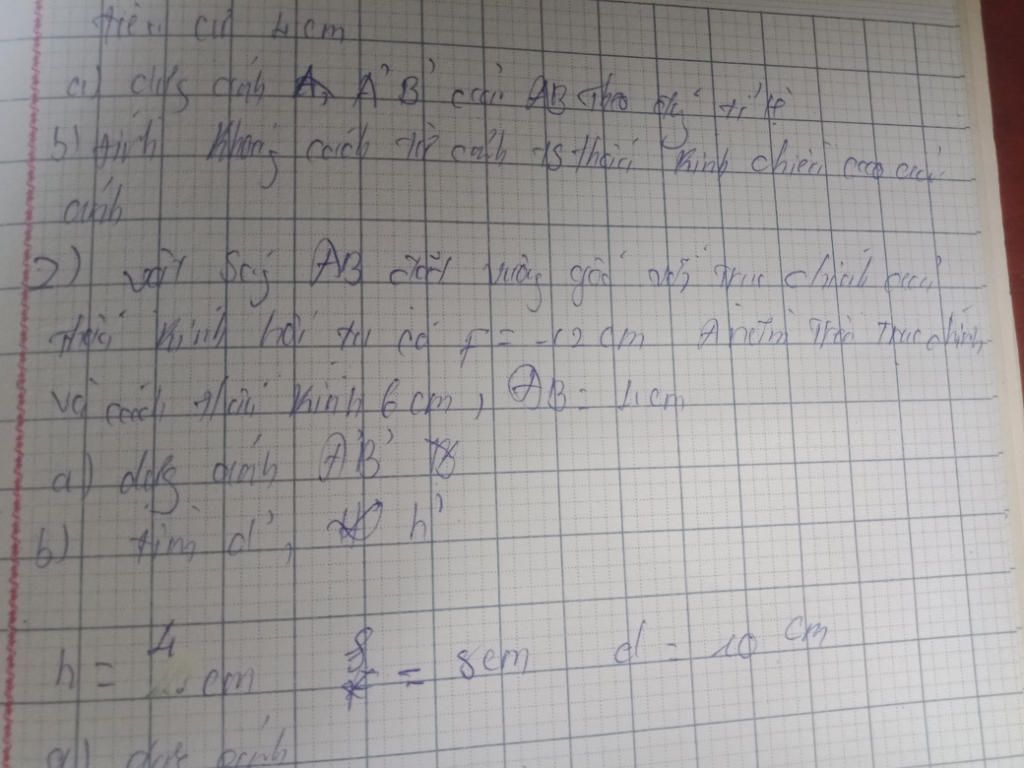 tiêu cự 4 cm
a) dựng ảnh A'B' của AB theo đúng tỉ lệ
b) tính khoảng cách từ ảnh tới thấu kính chiều cao của
ảnh
2) vật sáng AB đặt vuông góc với trục chính của
thấu kính hội tụ có f = 12 cm A nằm trên trục chính
và cách thấu kính 6 cm, AB = 4 cm
a) dựng ảnh A'B'
b) tìm d', h'
h = 4 cm f = 8 cm d = 10 cm
a) dựng ảnh